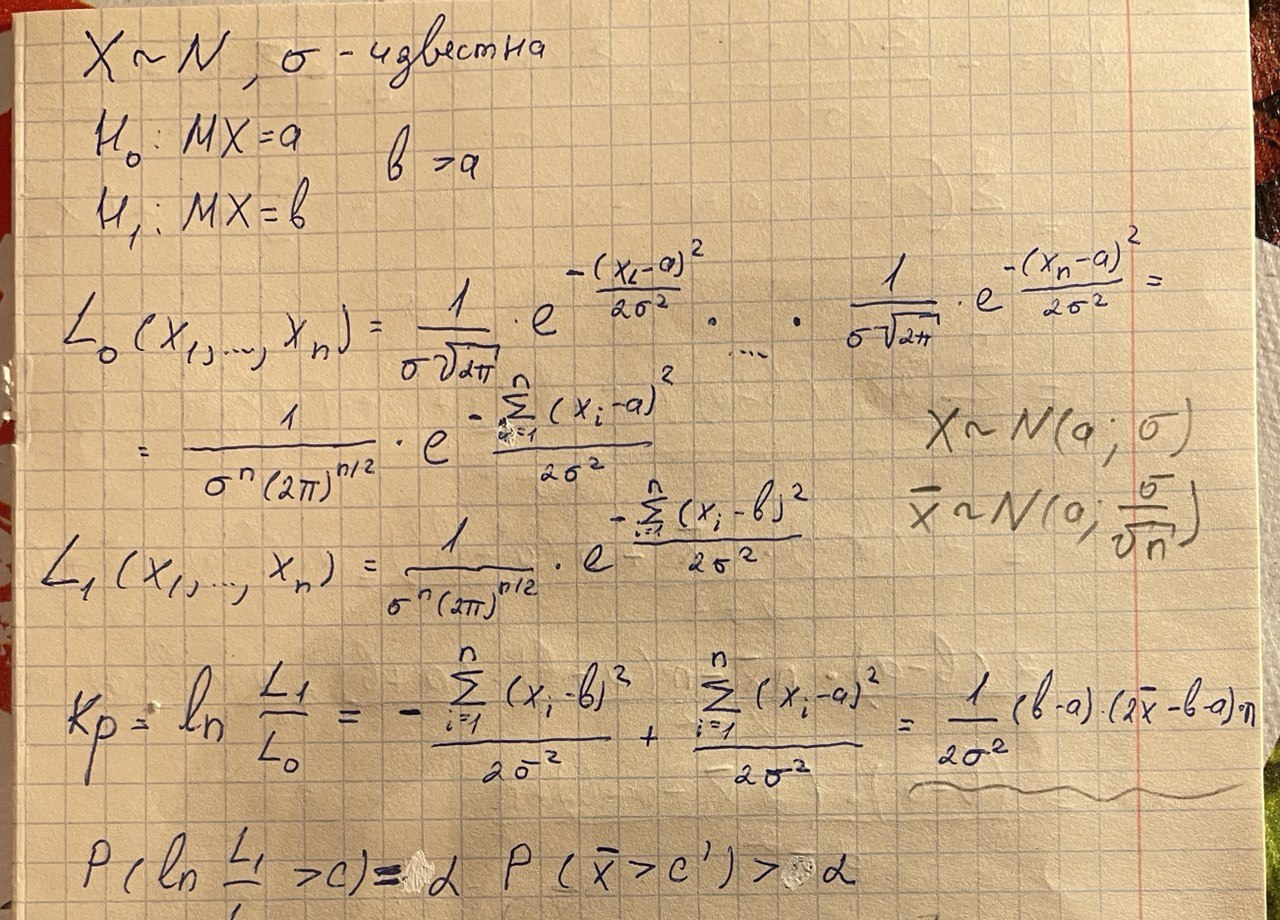 X ~ N, σ - известна
H₀: MX = a
b > a
H₁: MX = b
L₀(x₁, ..., xₙ) = 1/(σ√(2π)) · e^(-(x₁-a)²/(2σ²)) · ... · 1/(σ√(2π)) · e^(-(xₙ-a)²/(2σ²)) =
= 1/(σⁿ(2π)^(n/2)) · e^(-∑_{i=1}^{n}(xᵢ-a)²/(2σ²))
X ~ N(a; σ)
x̄ ~ N(a; σ/√n)
L₁(x₁, ..., xₙ) = 1/(σⁿ(2π)^(n/2)) · e^(-∑_{i=1}^{n}(xᵢ-b)²/(2σ²))
Kp = ln L₁/L₀ = -∑_{i=1}^{n}(xᵢ-b)²/(2σ²) + ∑_{i=1}^{n}(xᵢ-a)²/(2σ²) = 1/(2σ²) (b-a)·(2x̄-b-a)·n
P(ln L₁/ > c) = α P(x̄ > c') > α